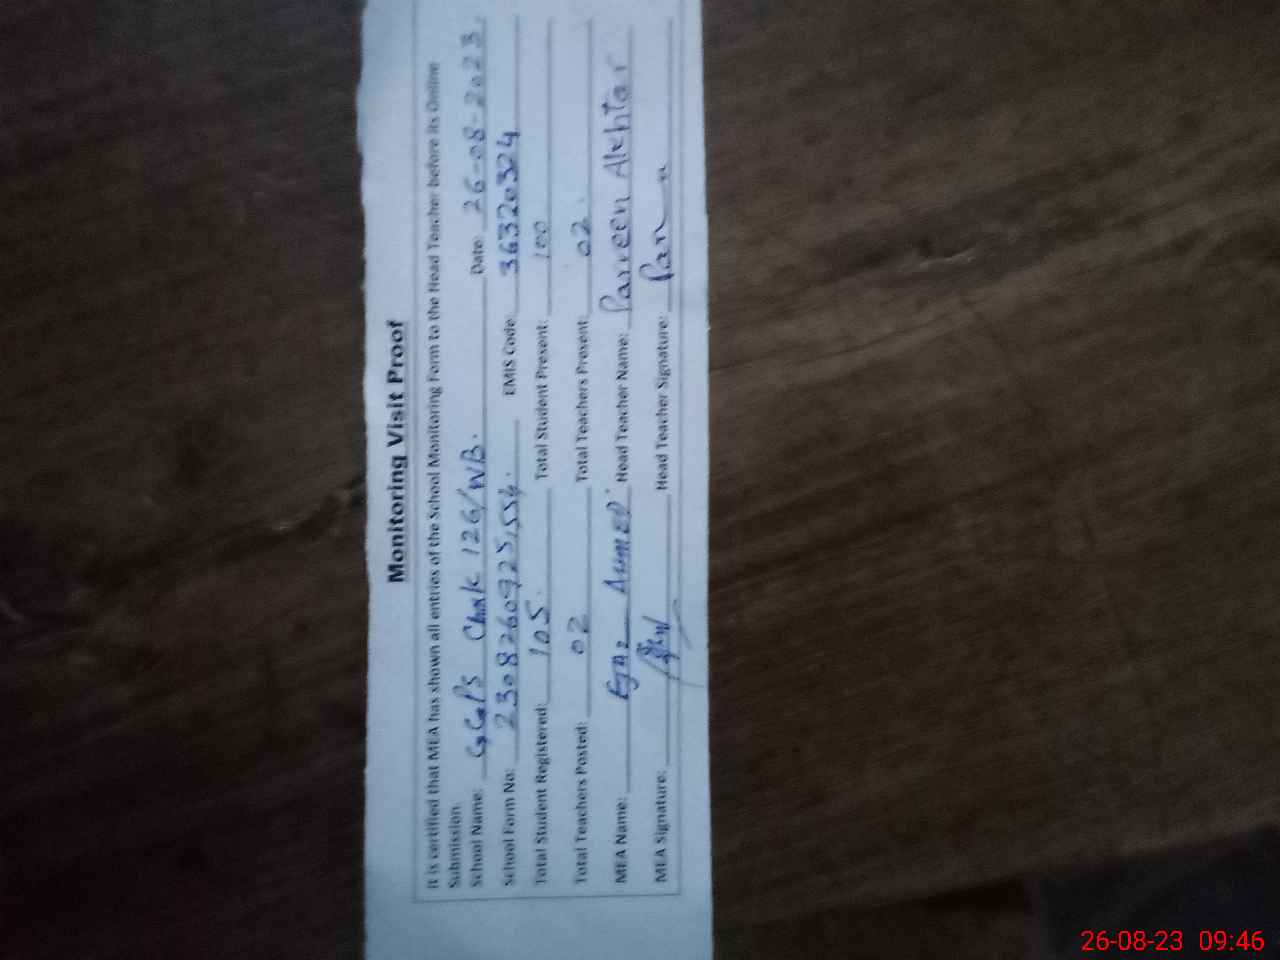 Monitoring Visit Proof
It is certified that MEA has shown all entries of the School Monitoring Form to the Head Teacher before its Online
Submission.
School Name: GGPS Chak 126/WB. Date: 26-08-2023
School Form No: EMIS Code: 36320324
Total Student Registered: 105. Total Student Present: 100
Total Teachers Posted: 02 Total Teachers Present: 02.
MEA Name: AHMED Head Teacher Name: Parveen Akhtar
MEA Signature: Head Teacher Signature:
26-08-23 09:46